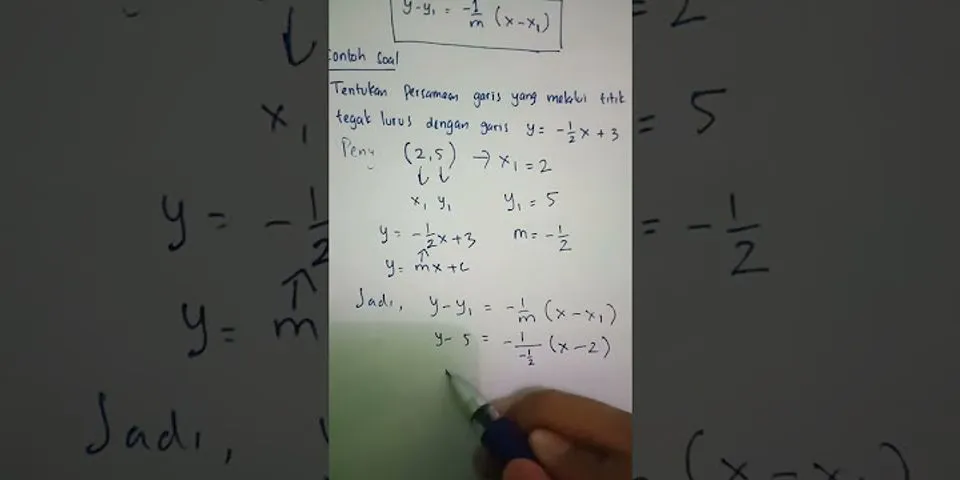 y-y₁ = -1/m (x-x₁)
Contoh Soal
Tentukan persamaan garis yang melalui titik
tegak lurus dengan garis y = -1/2x + 3
Peny (2,5) → x₁ = 2
x₁ y₁ y₁ = 5
y = -1/2x+3 m = -1/2
y = mx+c
Jadi, y-y₁ = -1/m (x-x₁)
y-5 = -1/-1/2 (x-2)